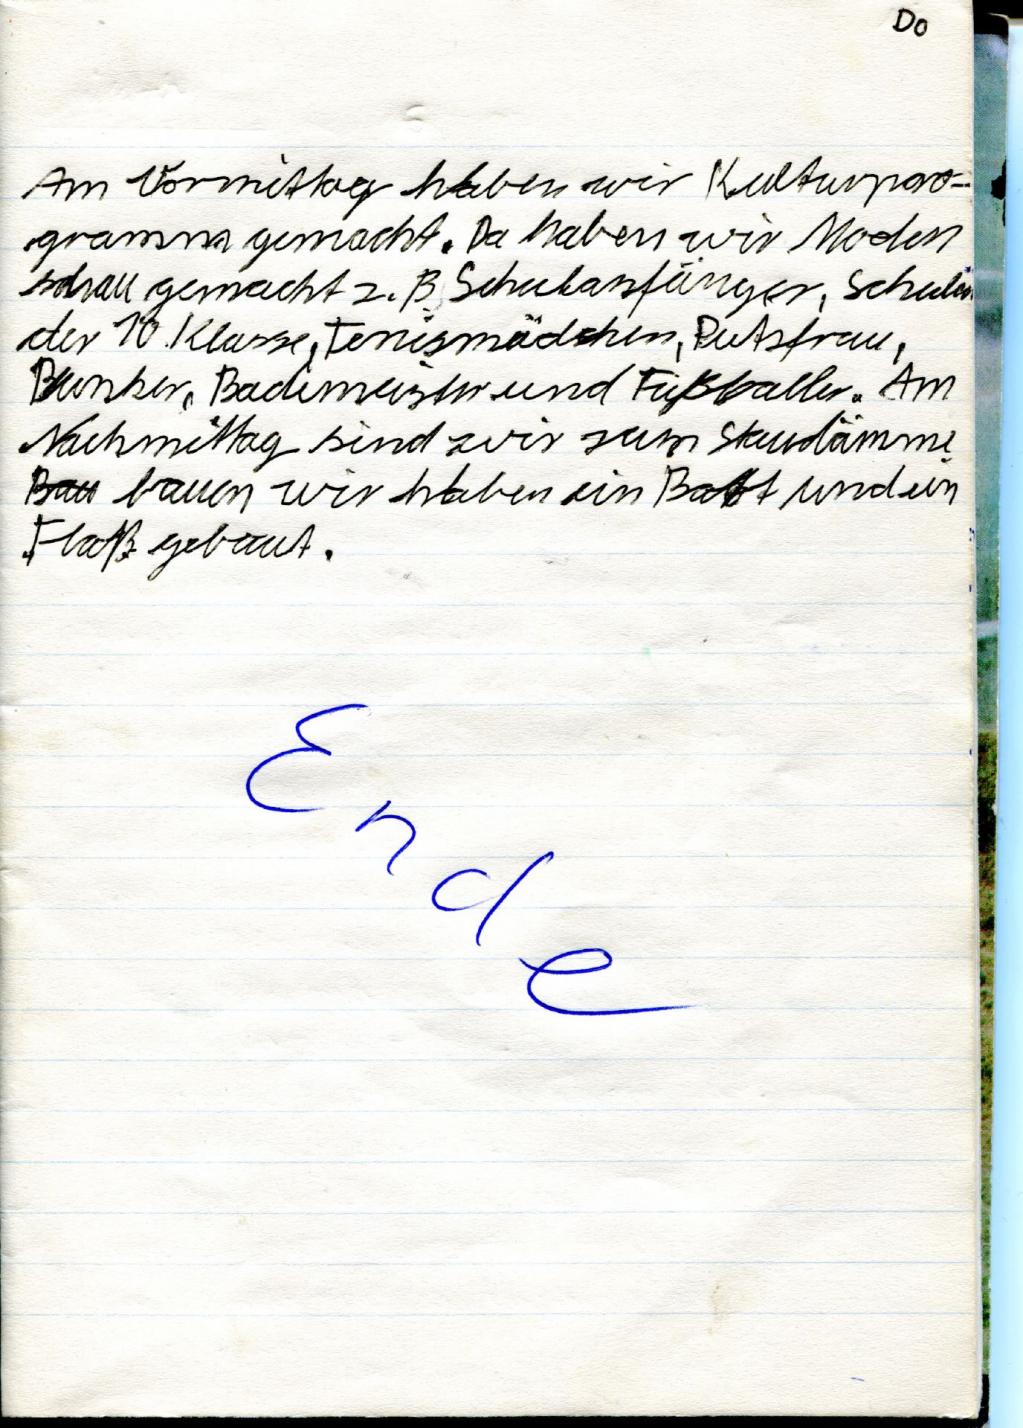 Do
Am Vormittag haben wir Kulturpro-
gramm gemacht. Da haben wir Moden
schau gemacht z. B. Schulanfänger, Schülin
der 10 Klasse, Tenismädchen, Putsfrau,
Bunker, Bademeister und Fußballer. Am
Nachmittag sind wir zum Staudämme
Bau bauen wir haben ein Boot und ein
Floß gebaut.
Ende